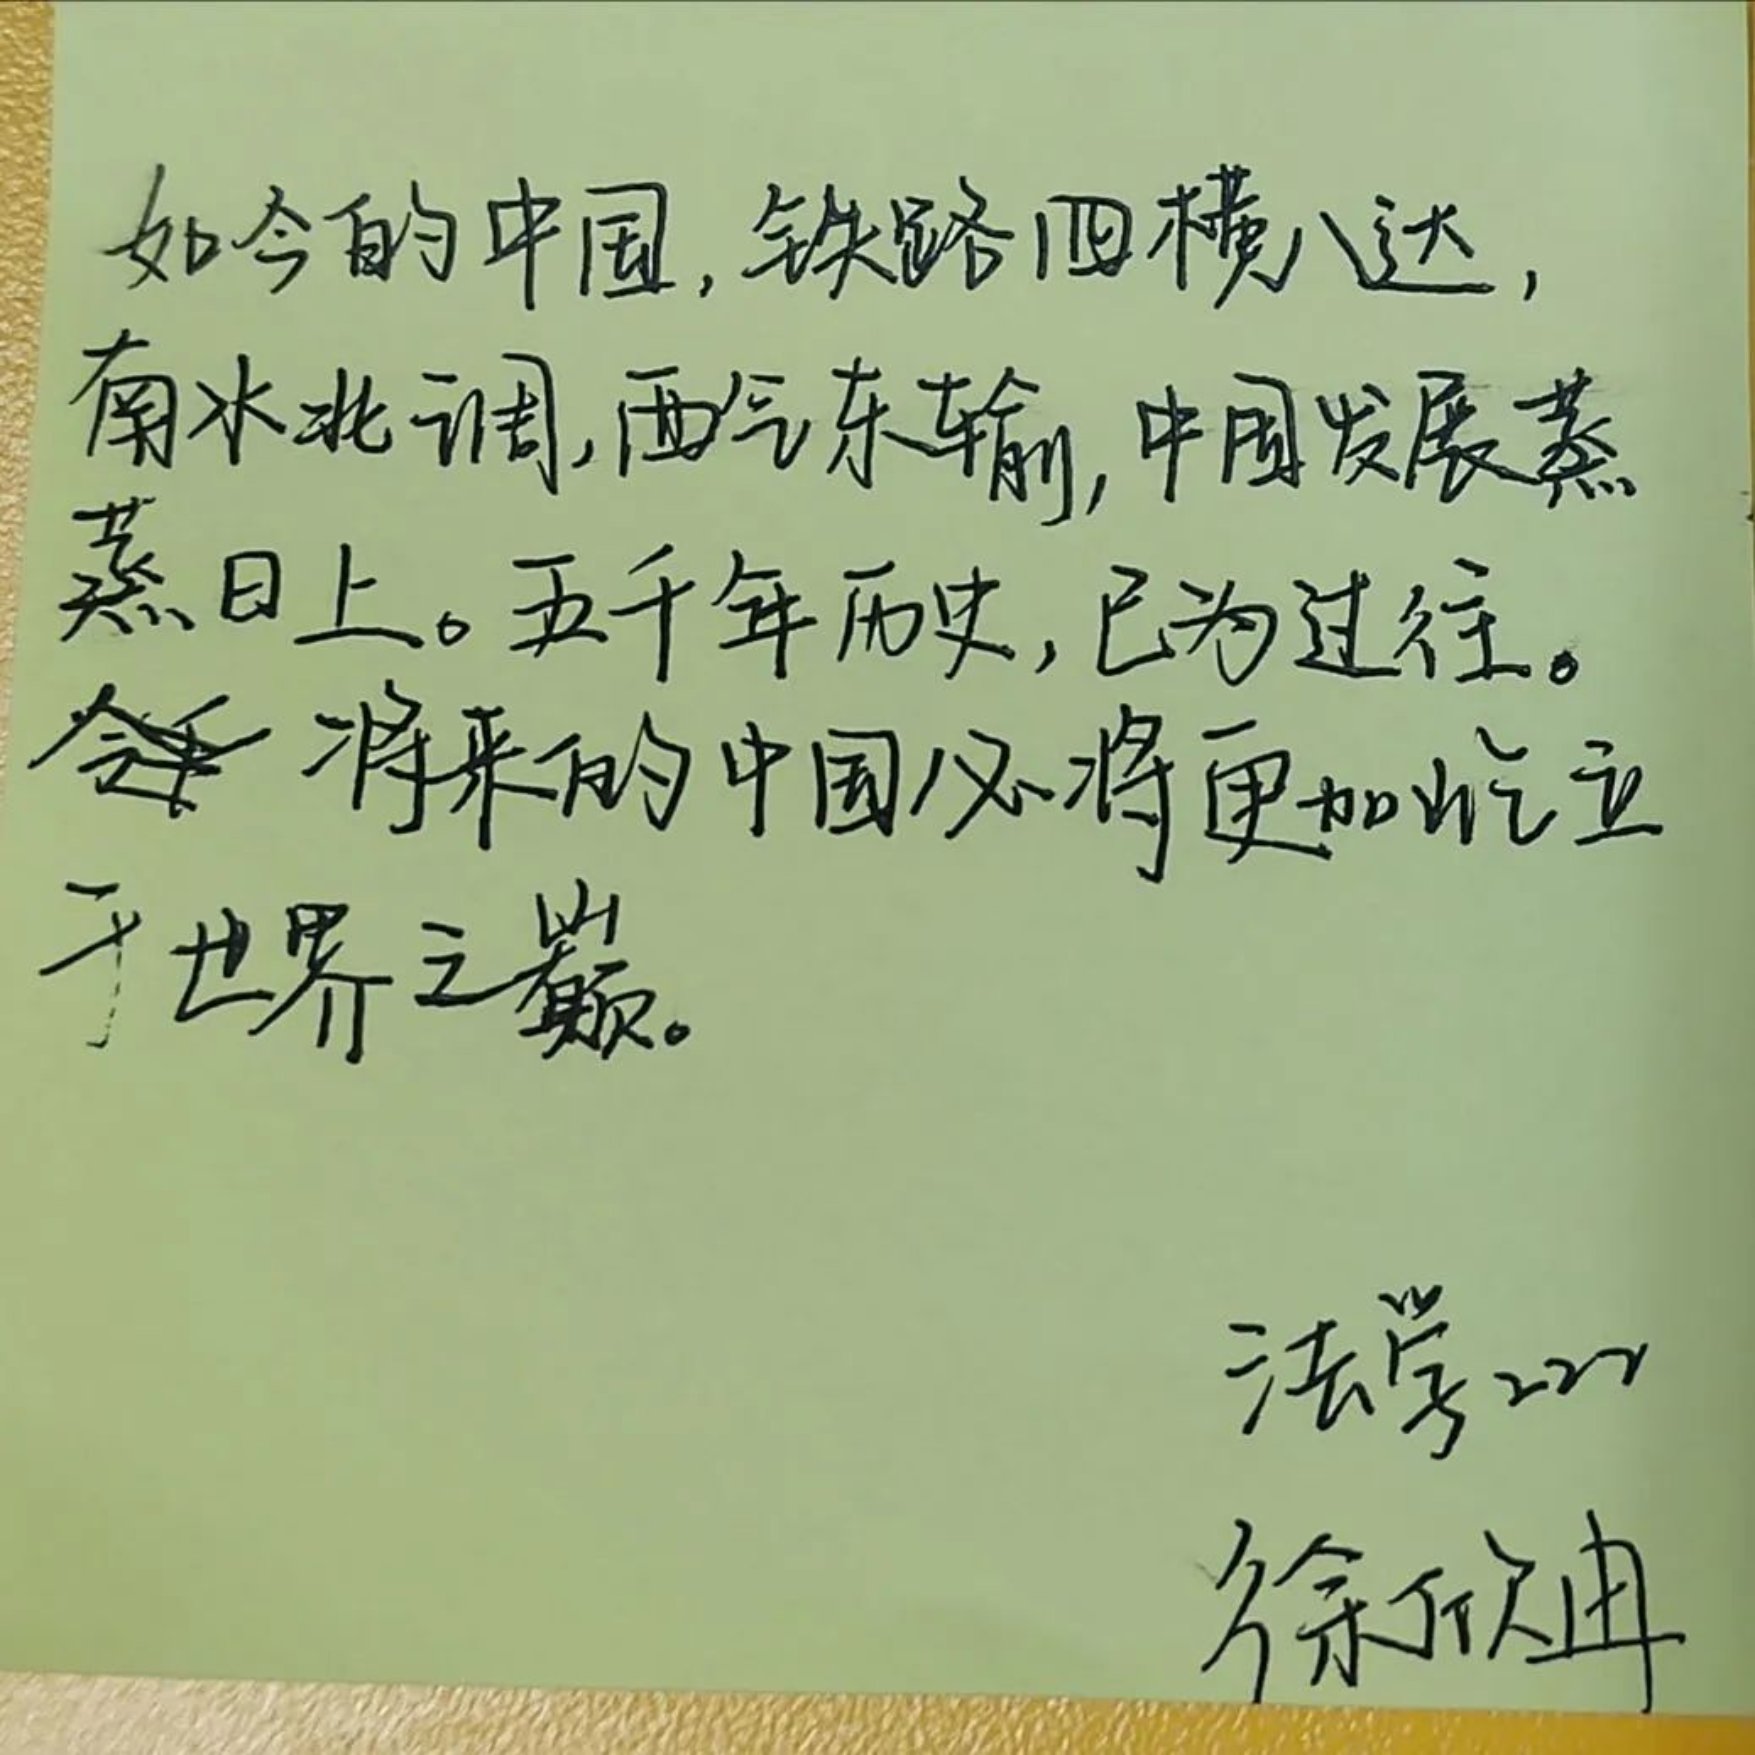 如今的中国,铁路四横八达,
南水北调,西气东输,中国发展蒸
蒸日上。五千年历史,已为过往。
将来的中国必将更加屹立
于世界之巅。
法学222
徐欣冉